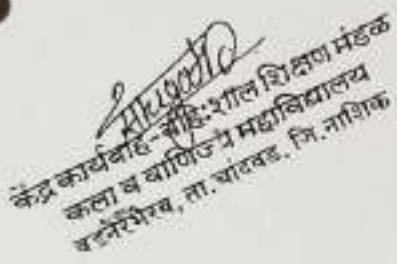 केंद्र कार्यवाह- बहि:शाल शिक्षण मंडळ
कला व वाणिज्य महाविद्यालय
वडनेरभैरव, ता. चांदवड. जि. नाशिक